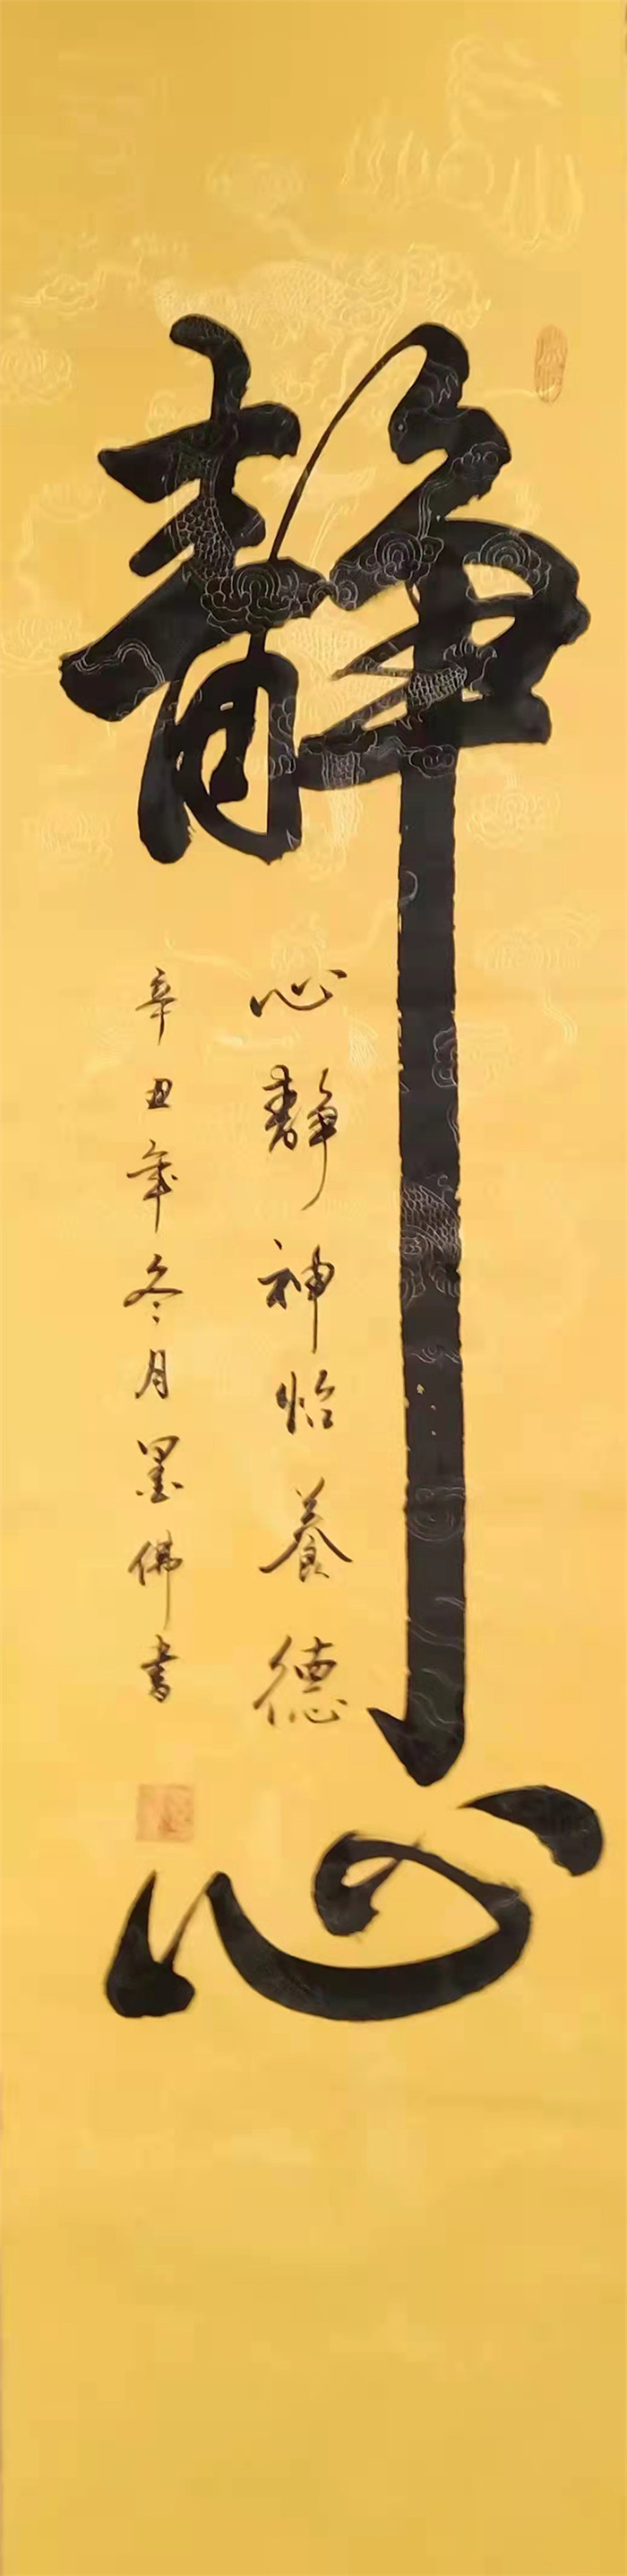 靜心
心靜神怡養德
辛丑年冬月墨佛書